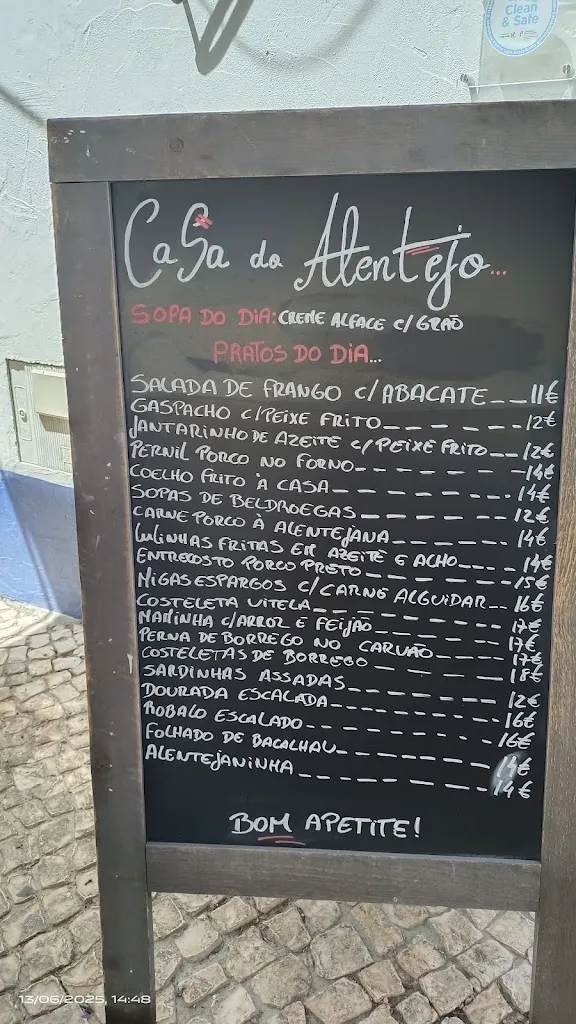 Clean
& Safe
CaSa do Alentejo...
SOPA DO DIA: CREME ALFACE C/GRAÕ
PRATOS DO DIA...
SALADA DE FRANGO C/ABACATE 11€
GASPACHO C/PEIXE FRITO 12€
JANTARINHO DE AZEITE C/PEIXE FRITO 12€
PERNIL PORCO NO FORNO 14€
COELHO FRITO À CASA 14€
SOPAS DE BELDROEGAS 12€
CARNE PORCO À ALENTEJANA 14€
LULINHAS FRITAS EM AZEITE E ALHO 14€
ENTRECOSTO PORCO PRETO 15€
MIGAS ESPARGOS C/CARNE ALGUIDAR 16€
COSTELETA VITELA 17€
MAMINHA C/ARROZ E FEIJÃO 17€
PERNA DE BORREGO NO CARVÃO 17€
COSTELETAS DE BORREGO 18€
SARDINHAS ASSADAS 12€
DOURADA ESCALADA 16€
ROBALO ESCALADO 16€
FOLHADO DE BACALHAU 14€
ALENTEJANINHA 14€
BOM APETITE!
13/06/2025, 14:48